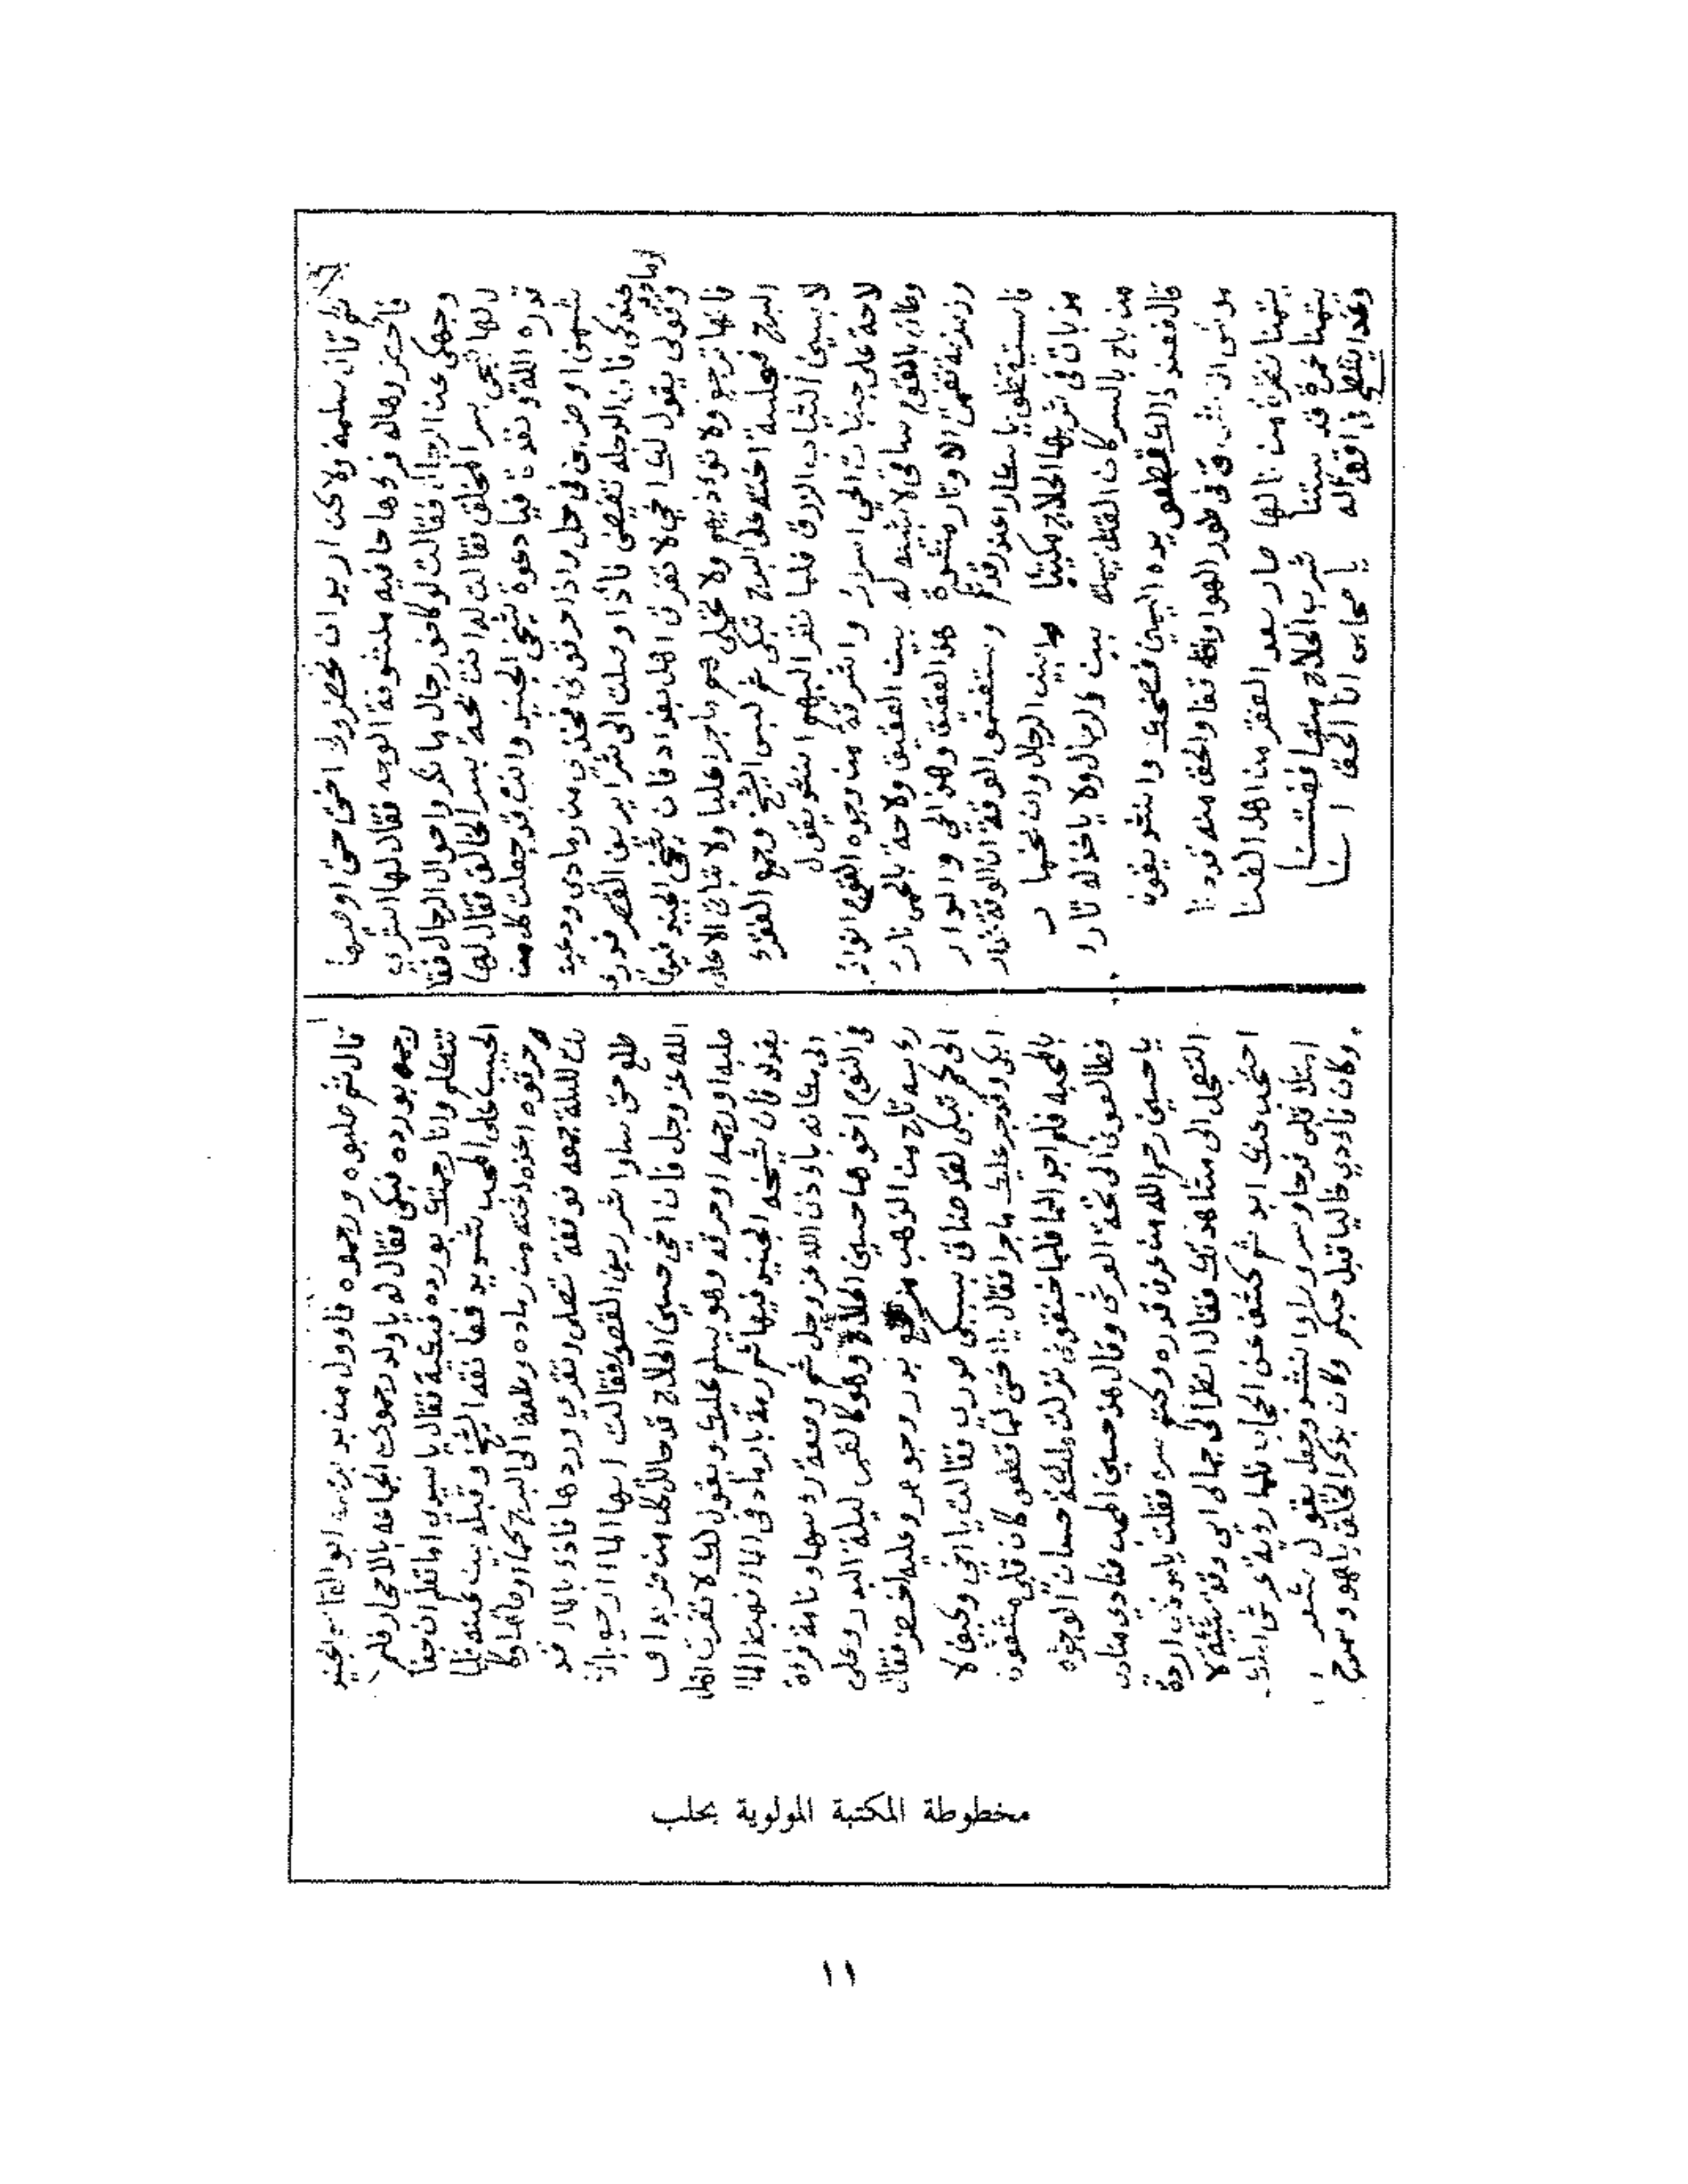 ثم قال سلمة ولاكن اريد ان تحضروا اختي حتى اوصيها
فأحضروها له فردها حافيه مكشوفة الوجه فقال لها استري
وجهكي عن الرجال فقالت لو كانو رجال ما نكروا حوال الرجال فقا
لها شحي بسر المخلق فقالت له انت بحة بسر الخالق فقال لها
قدره الله ونفدت فيا دعوة شيخي الجنيد وانت قد جعلت كل من
شتمني اوضربني في حل واذا حرقوني فخذي من رمادي ودعيه
عندكي فان الدجله تفيض فاذا وصلت الى شراريف القصر فدري
وقولي يقول لك اخي لا تغرق اهل بغداد فان شيخي الجنيد فيها
فانها ترجع ولا تؤذيهم ولا تخلي هم ما جرا عليا ولا بتات الاعاد
البرج فجلسة اخته على البرج تبكي ثم لبس الشيخ وجمع الفقرة
لابسين الثياب الزرق فلما نظر اليهم انشد يقول
لاحة على جنبات الحي اسرار واشرقة من وجوه القوم انوار
وطاب بالقوم ساقي لا شبيه له بيت العقيق ولاحة بالحمى نار
ورنرنة نقمة الاوتار منشدة هذا العقيق وهذا الحي والدار
فاسيت تظني يا سعار اعند قدم وستغنمو الوقة ان الوقة غدار
مذبات في شربها الحلاج مكيتا ما بيت الرجال وان نحنها د
من باح بالسر كان القتل شيمته بيت الرجال ولا ياخذ له تار
قال فعند ذالك قطعو يده اليمين فضحك وانشد يقول
موسى الى شرقي في طور الهوا والله تفا والحق منه قد دنا
يتمنا نظرة من نالها صار بعد الفقر من اهل الغنا
يتمنا خمرة قد ستنا شرب الحلاج منها ففتنا
وغدا يتضح ذا قوله يا صحابي انا الحق انا
قال ثم صلبوه ورجموه فاول من بدا برجمه ابو القاسم الجنيد
رجمه بورده فبكى فقال له يا ولد رجموك الجماعه بالاحجار فلم
تتكلم وانا رجمتك بورده فبكية فقال يا سيدي اما تعلم ان جفا
الحبيب على المحب شديد فعانقه الشيخ وقبله بين عينيه فلما
وحرقوه اخذه اخته من رماده وطلعة الى البرج كما اوصاها وكا
تلك لليلة جمعه فوقفة تصلي وتقري وردها فاذا بالماء قد
طلع حتى ساوا شراريف القصور فقالت ايها الماء ارجع باذن
الله عز وجل فان اخي حسين الحلاج قد حالل كل من ضربه او
صلبه اورجمه اوحرقه وهو يسلم عليك ويقول لك لا تغرق اهل
بغداد فان شيخه الجنيد فيها ثم رمة بالرماد في الماء فهبط الماء
الى مكانه باذن الله عز وجل ثم وضعة راسها ونامة فراة
في النوم اخوها حسين الحلاج وهو كالقمر ليلة البدر وعلى
راسه تاج من الذهب مرصع بدر وجوهر وعليه اخضر فقال
الى كم تبكي لقد ضاق بسببكي صدري فقالت يا اخي وكيف لا
ابكي وقد جرا عليك ما جرا فقال يا اختي لما قطعو كان قلبي مشغول
بالمحبه فلم اجد الما فلما خنقوني نزلت ملئكة حسان الوجوه
فطالعوني الى تحة العرش وقال هذ حسين المحب فنادى مناد
يا حسين رحم الله من عرف قدره وكتم سره فقلت يا رب اردة
التعجل الى مشاهدتك فقال انظر الى جمالي اي وقة شئة لا
احتجب عنك ابد ثم كشف عن الحجاب فلما روية عرش املك
امتلا قلبي فرحا وسرورا وانشد وجعل يقول شعر
وكان فاادي خاليا قبل حبكم وكان بذكر الخلق يلهو ويمرح
مخطوطة المكتبة المولوية بحلب
١١